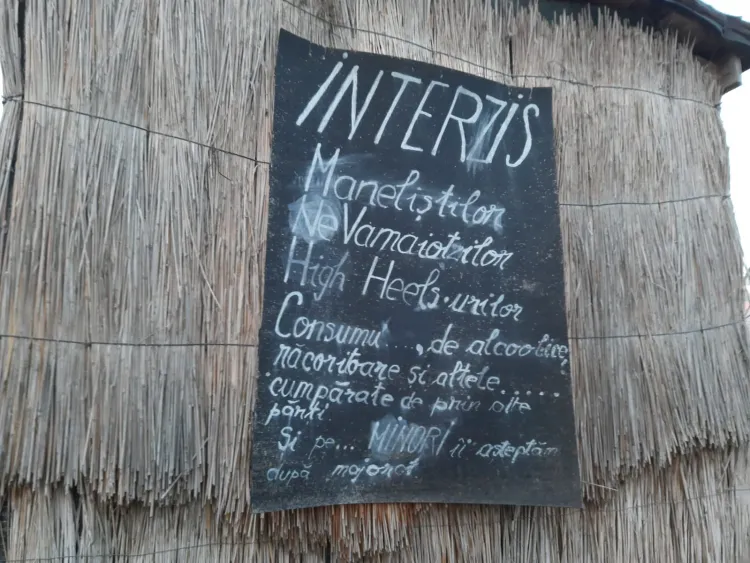 INTERZIS
Maneliștilor
NeVamaioților
High Heels-urilor
Consumu' ..., de alcoolice,
răcoritoare și altele......
cumpărate de prin alte
părți
Și pe... MINORI îi așteptăm
după majorat.